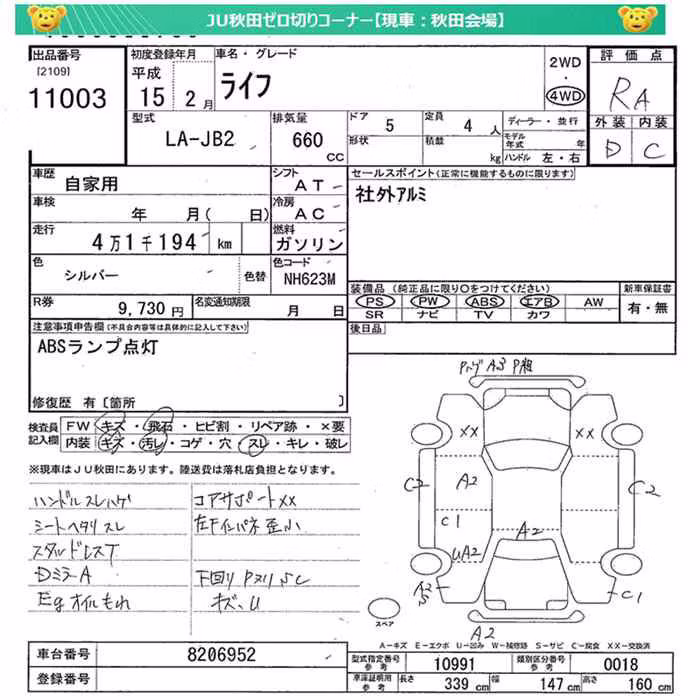 JU秋田ゼロ切りコーナー【現車：秋田会場】
出品番号
[2109]
11003
初度登録年月
平成
15 2月
車名・グレード
ライフ
2WD
・
4WD
評価点
RA
外装 内装
D C
型式
LA-JB2
排気量
660
CC
ドア 5
形状
定員 4 人
積載 kg
ディーラー・並行
モデル年式 年
ハンドル 左・右
車歴
自家用
シフト
AT
セールスポイント(正常に機能するものに限ります)
社外アルミ
車検
年 月( 日)
冷房
AC
走行
4万1千194 km
燃料
ガソリン
色
シルバー
色替
色コード
NH623M
装備品 (純正品に限り○をつけてください)
新車保証書
PS PW ABS エアB AW
SR ナビ TV カワ
有・無
R券
9,730円
名変通知期限
月 日
後日品
注意事項申告欄(不具合内容等は具体的に記入して下さい)
ABSランプ点灯
修復歴 有〔箇所 〕
検査員記入欄
FW キズ・飛石・ヒビ割・リペア跡・×要
内装 キズ・汚レ・コゲ・穴・スレ・キレ・破レ
※現車はJU秋田にあります。陸送費は落札店負担となります。
ハンドルスレハゲ
シートヘタリスレ
スタッドレスT
Dミラー A
Egオイルもれ
コアサポートXX
左Fインパネ歪小
下回りPヌリ SC
キズ、U
Pハゲ A3 P粗
XX
XX
C2
A2
C2
C1
A2
UA2
A2
S
C1
A2
スペア
A－キズ E－エクボ U－凹み W－補修跡 S－サビ C－腐食 XX－交換済
車台番号 8206952
登録番号
型式指定番号 参考 10991
類別区分番号 参考 0018
車庫証明用 参考 長さ 339 cm 幅 147 cm 高さ 160 cm